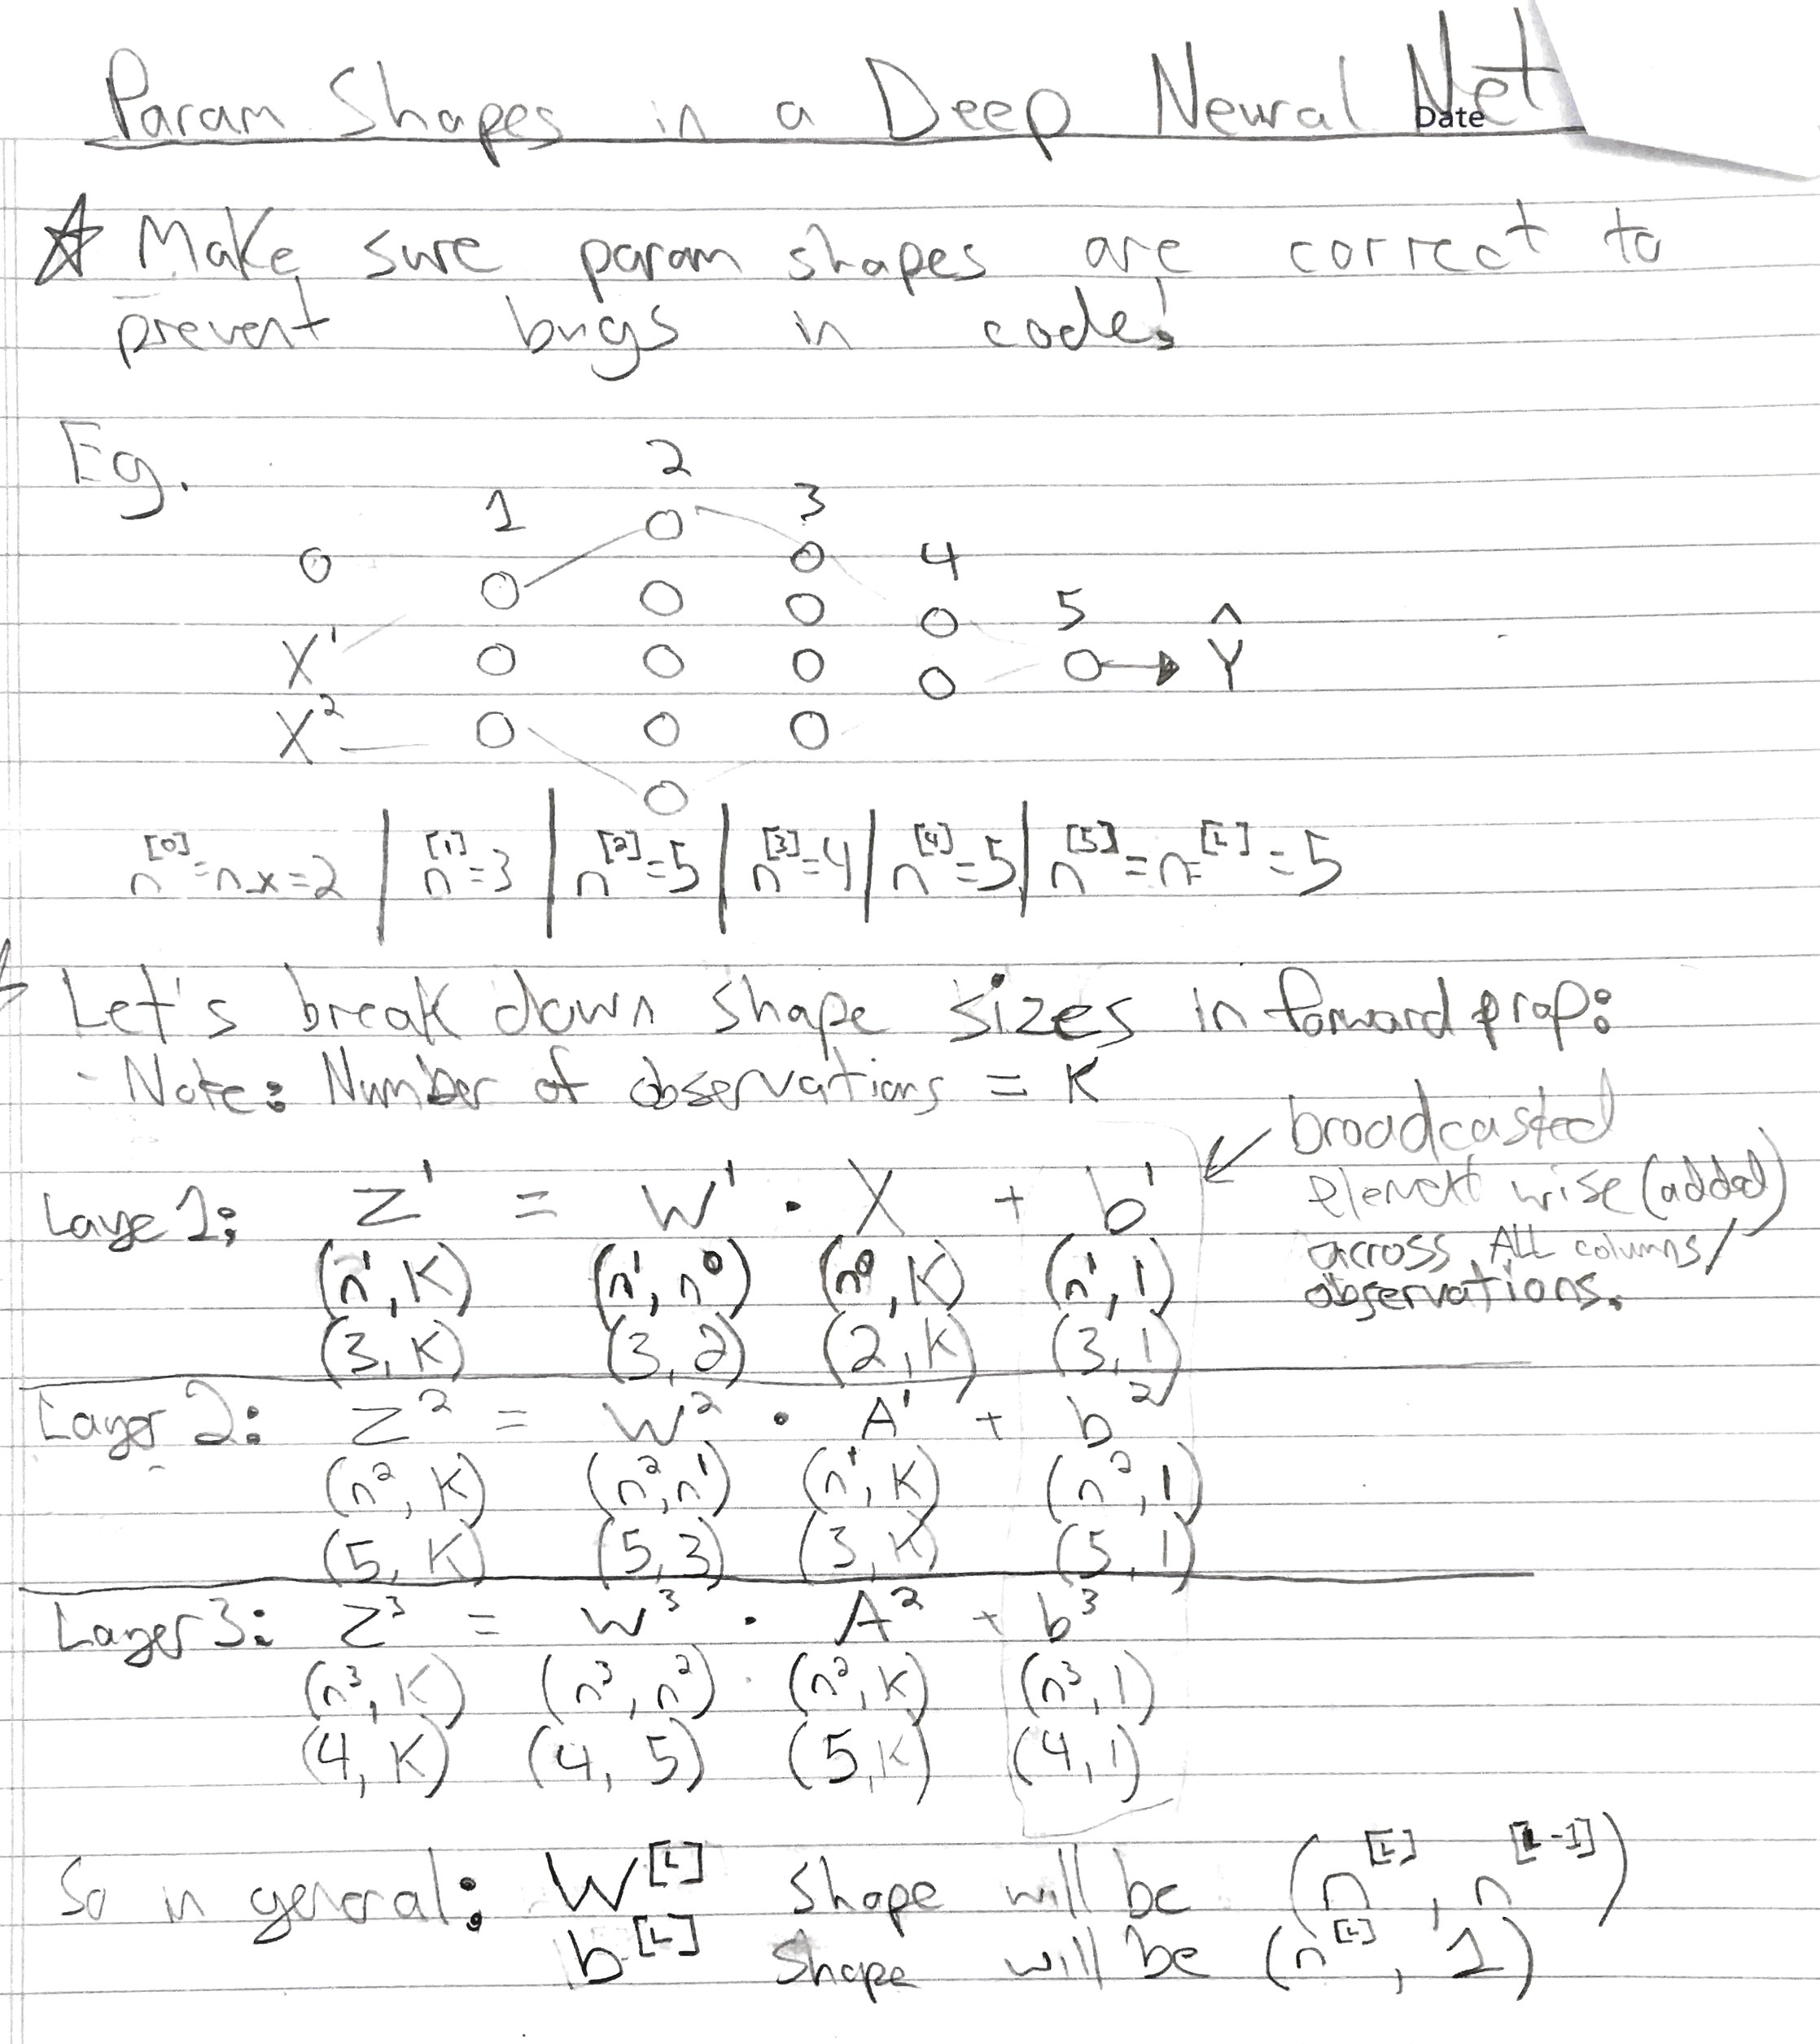 Param Shapes in a Deep Neural Net
Date
☆ Make sure param shapes are correct to
prevent bugs in code!
Eg.
0 1 2 3 4 5
X¹
X²
Ŷ
n^[0] = n_x = 2 | n^[1] = 3 | n^[2] = 5 | n^[3] = 4 | n^[4] = 5 | n^[5] = n^[L] = 5
Let's break down shape sizes in forward prop:
- Note: Number of observations = K
broadcasted
element wise (added)
across ALL columns/
observations.
Laye 1: Z¹ = W¹ · X + b¹
(n¹, K) (n¹, n⁰) (n⁰, K) (n¹, 1)
(3, K) (3, 2) (2, K) (3, 1)
Layer 2: Z² = W² · A¹ + b²
(n², K) (n², n¹) (n¹, K) (n², 1)
(5, K) (5, 3) (3, K) (5, 1)
Layer 3: Z³ = W³ · A² + b³
(n³, K) (n³, n²) · (n², K) (n³, 1)
(4, K) (4, 5) (5, K) (4, 1)
So in general: W^[L] shape will be (n^[L], n^[L-1])
b^[L] shape will be (n^[L], 1)